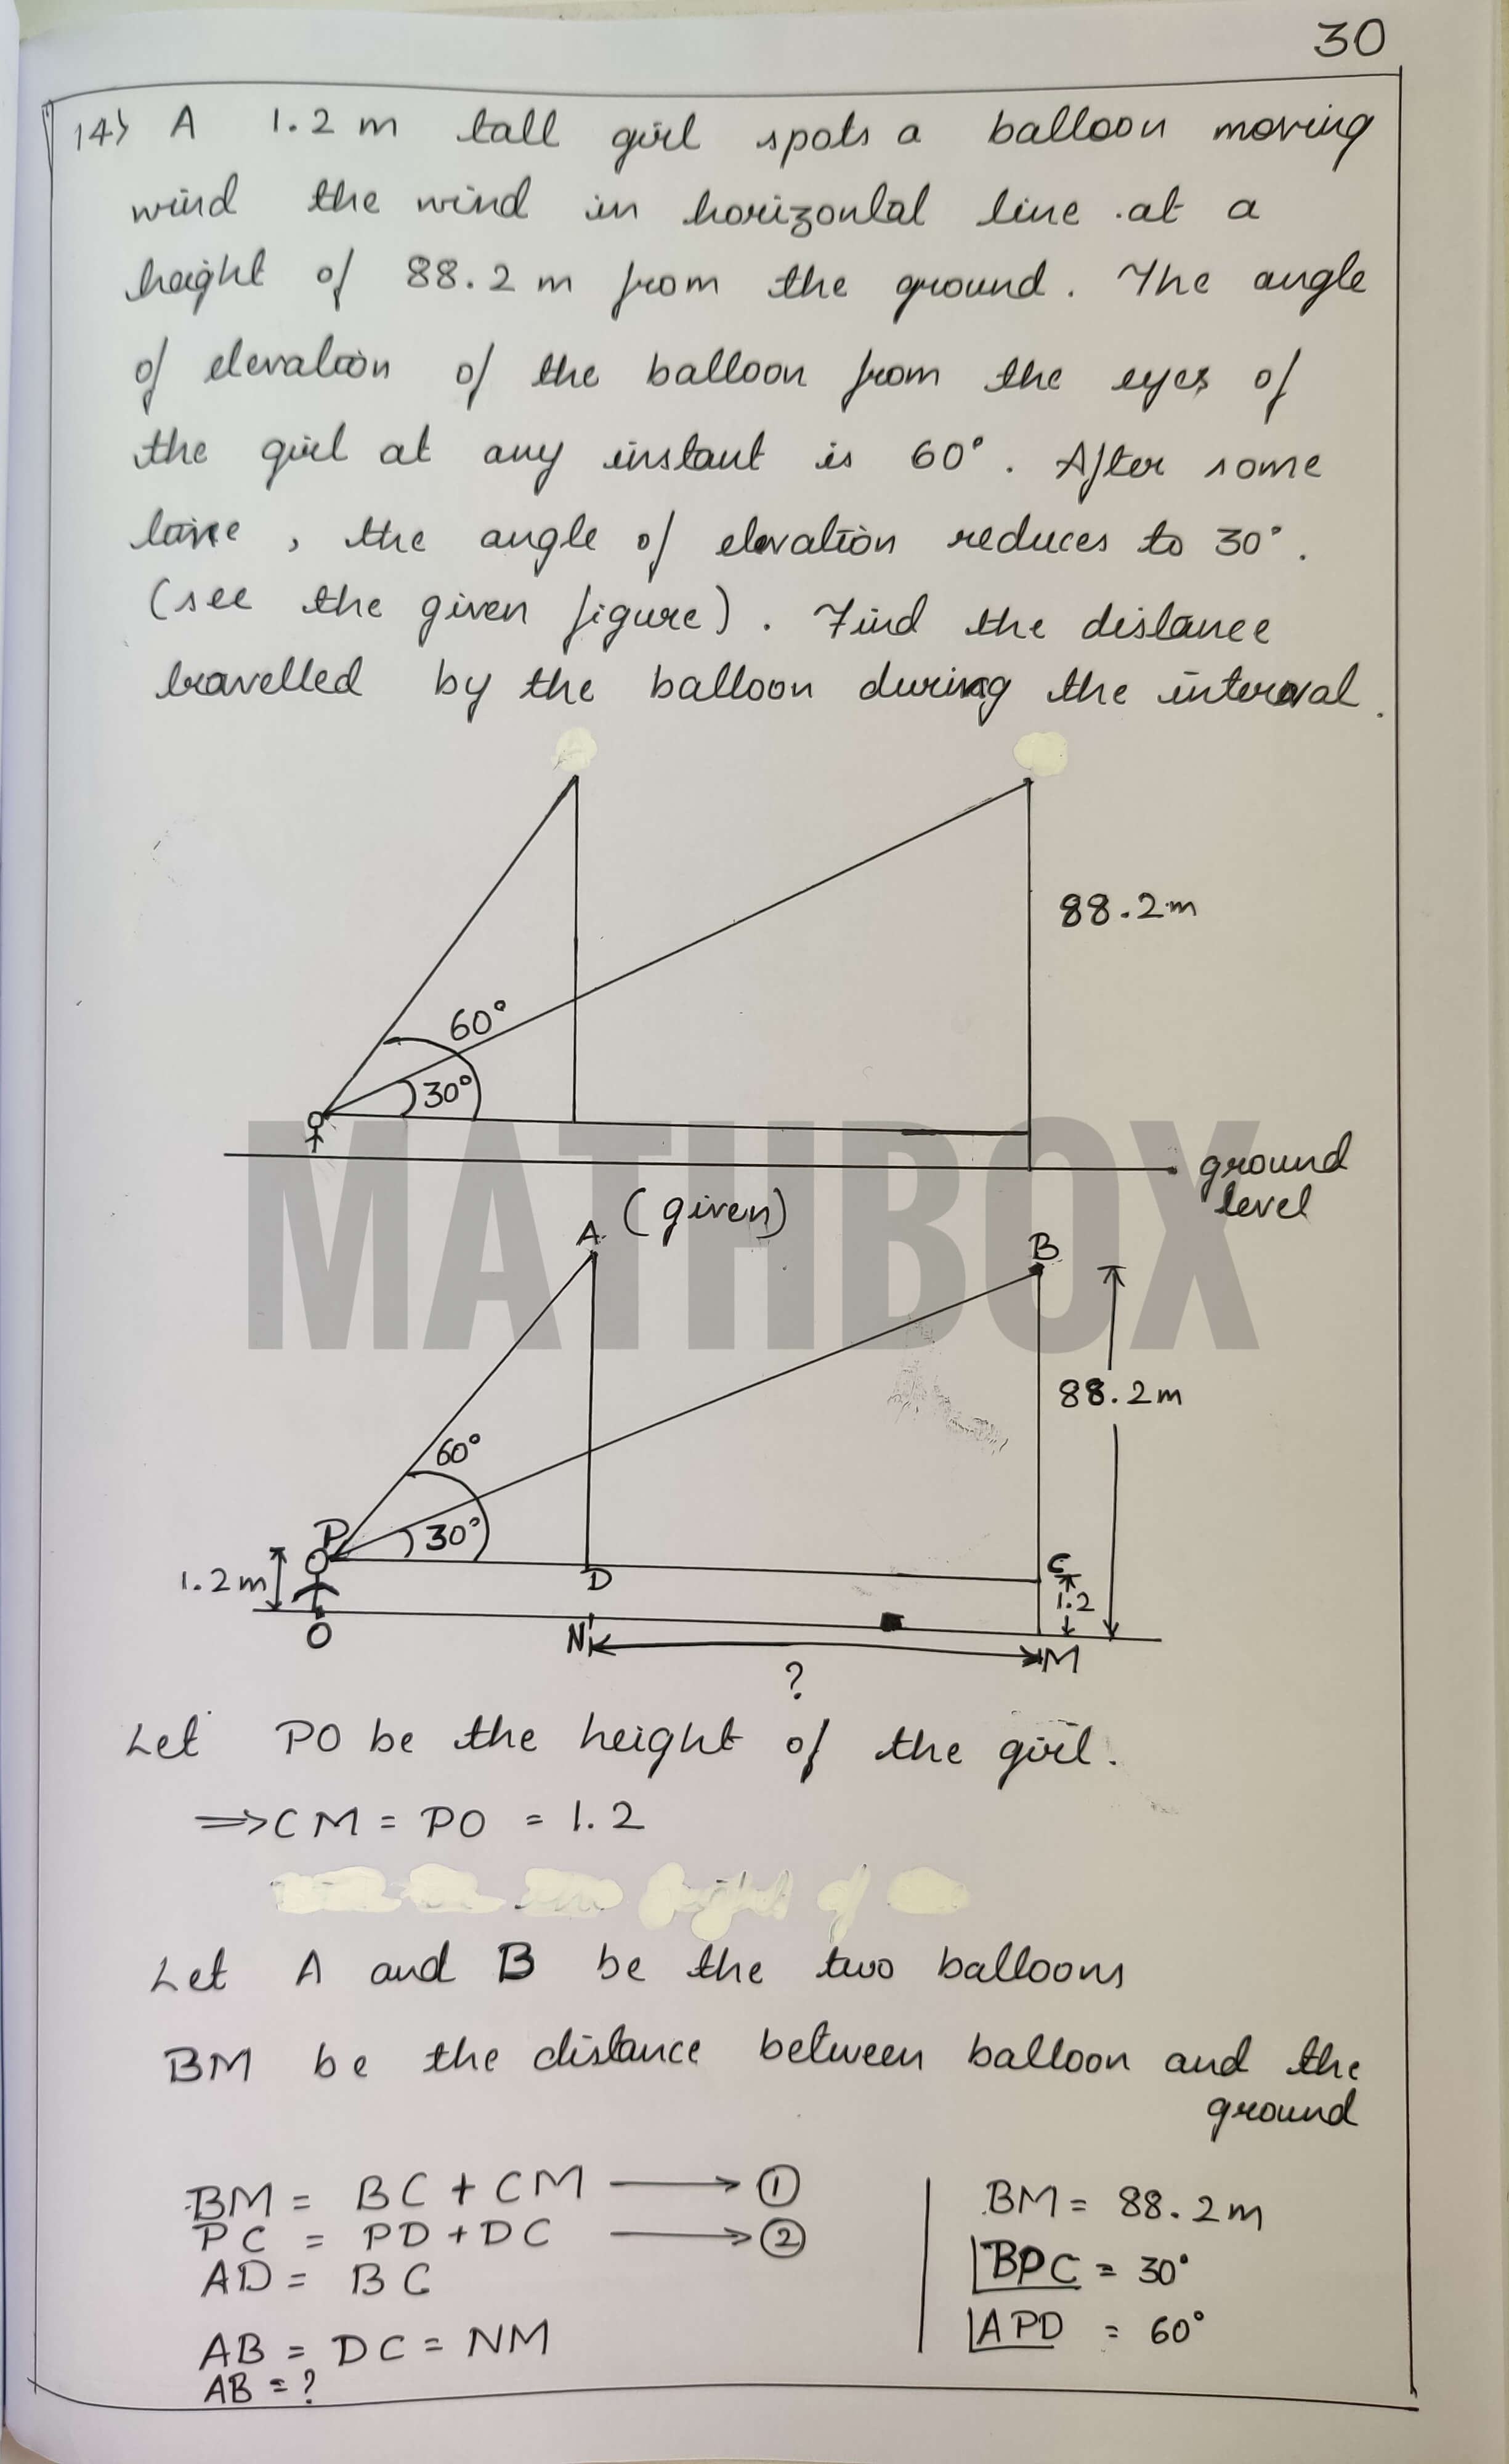 30
14) A 1.2 m tall girl spots a balloon moving
wind the wind in horizontal line at a
height of 88.2 m from the ground. The angle
of elevation of the balloon from the eyes of
the girl at any instant is 60°. After some
time, the angle of elevation reduces to 30°.
(see the given figure). Find the distance
travelled by the balloon during the interval.
88.2m
60°
30°
ground
level
MATHBOX
(given)
A
B
88.2m
60°
P
30°
1.2m
D
C
1.2
O
N
M
?
Let PO be the height of the girl.
⇒ CM = PO = 1.2
Let A and B be the two balloons
BM be the distance between balloon and the
ground
BM = BC + CM ⟶ ①
PC = PD + DC ⟶ ②
AD = BC
AB = DC = NM
AB = ?
BM = 88.2m
∠BPC = 30°
∠APD = 60°